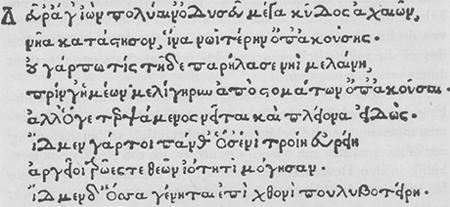 Δεῦρ' ἄγ' ἰὼν πολύαιν' ὀδυσεῦ μέγα κῦδος ἀχαιῶν,
νῆα κατάστησον, ἵνα νωϊτέρην ὄπ' ἀκούσης.
οὐ γάρ πω τίς τῆδε παρήλασε νηῒ μελαίνη,
πρίν γ' ἡμέων μελίγηρυν ἀπὸ στομάτων ὄπ' ἀκοῦσαι.
ἀλλ' ὅγε τερψάμενος νεῖται καὶ πλείονα εἰδώς.
ἴδμεν γάρ τοι πάνθ' ὅσ' ἐνὶ τροίη εὐρείη
ἀργεῖοι τρῶές τε θεῶν ἰότητι μόγησαν.
ἴδμεν δ' ὅσσα γένηται ἐπὶ χθονὶ πουλυβοτείρη.